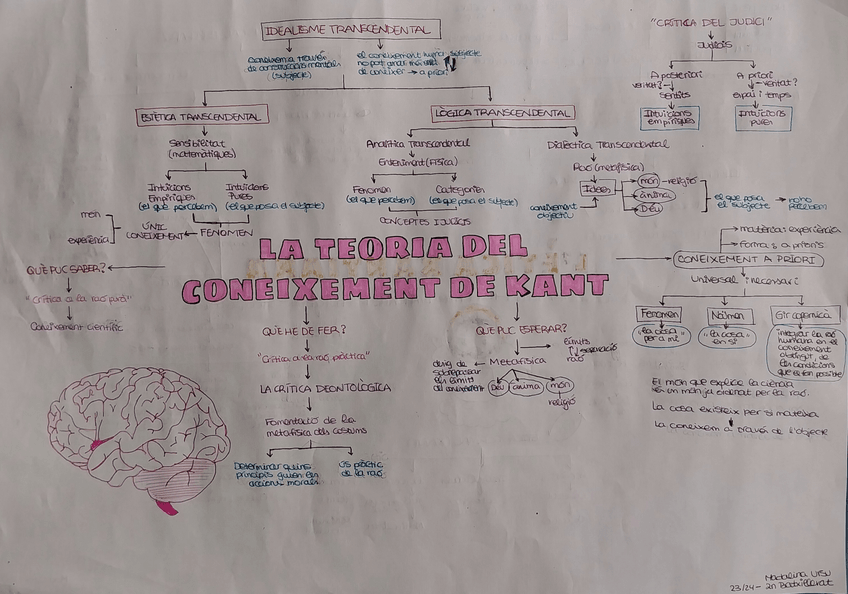 IDEALISME TRANSCENDENTAL
"CRÍTICA DEL JUDICI"
JUDICIS
A posteriori
veritat?
sentits
Intuïcions
empíriques
A priori
veritat?
espai i temps
Intuïcions
pures
Coneixem a través
de construccions mentals
(subjecte)
el coneixement humà
no pot anar més enllà
de conèixer → a priori
subjecte
ESTÈTICA TRANSCENDENTAL
LÒGICA TRANSCENDENTAL
Sensibilitat
(matemàtiques)
Intuïcions
Empíriques
(el que percebem)
Intuïcions
Pures
(el que posa el subjecte)
món
experiència
ÚNIC
CONEIXEMENT
FENOMEN
Analítica Transcendental
Enteniment (Física)
Fenomen
(el que percebem)
Categories
(el que posa el subjecte)
CONCEPTES I JUDICIS
Dialèctica Transcendental
Raó (metafísica)
Idees
món
religió
ànima
Déu
coneixement
objectiu
el que posa
el subjecte
no ho
percebem
LA TEORIA DEL
CONEIXEMENT DE KANT
QUÈ PUC SABER?
"Crítica a la raó pura"
Coneixement científic
QUÈ HE DE FER?
"Crítica a la raó pràctica"
LA CRÍTICA DEONTOLÒGICA
Fomentació de la
metafísica dels costums
Determinar quins
principis guien les
accions morals
Ús pràctic
de la raó
QUÈ PUC ESPERAR?
Metafísica
límits
separació
raó
desig de
sobrepassar
els límits
del coneixement
Déu
ànima
món
religió
CONEIXEMENT A PRIORI
matèries experiència
formes a prioris
Universal i necessari
Fenomen
"la cosa
per a mi"
Noümen
"la cosa
en si"
Gir copernicà
integrar la raó
humana en el
coneixement
obtingut, de
les condicions
que el fan possible
El món que explica la ciència
és un món ja ordenat per la raó.
La cosa existeix per si mateixa
La coneixem a través de l'objecte
Madalina Ursu
23/24 - 2n Batxillerat